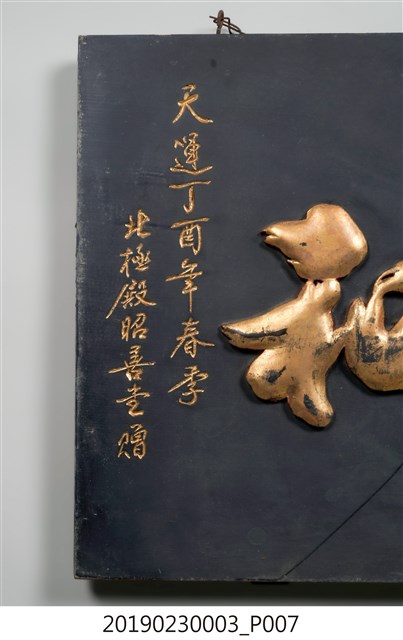 天運丁酉年春季
北極殿昭善堂贈
20190230003_P007